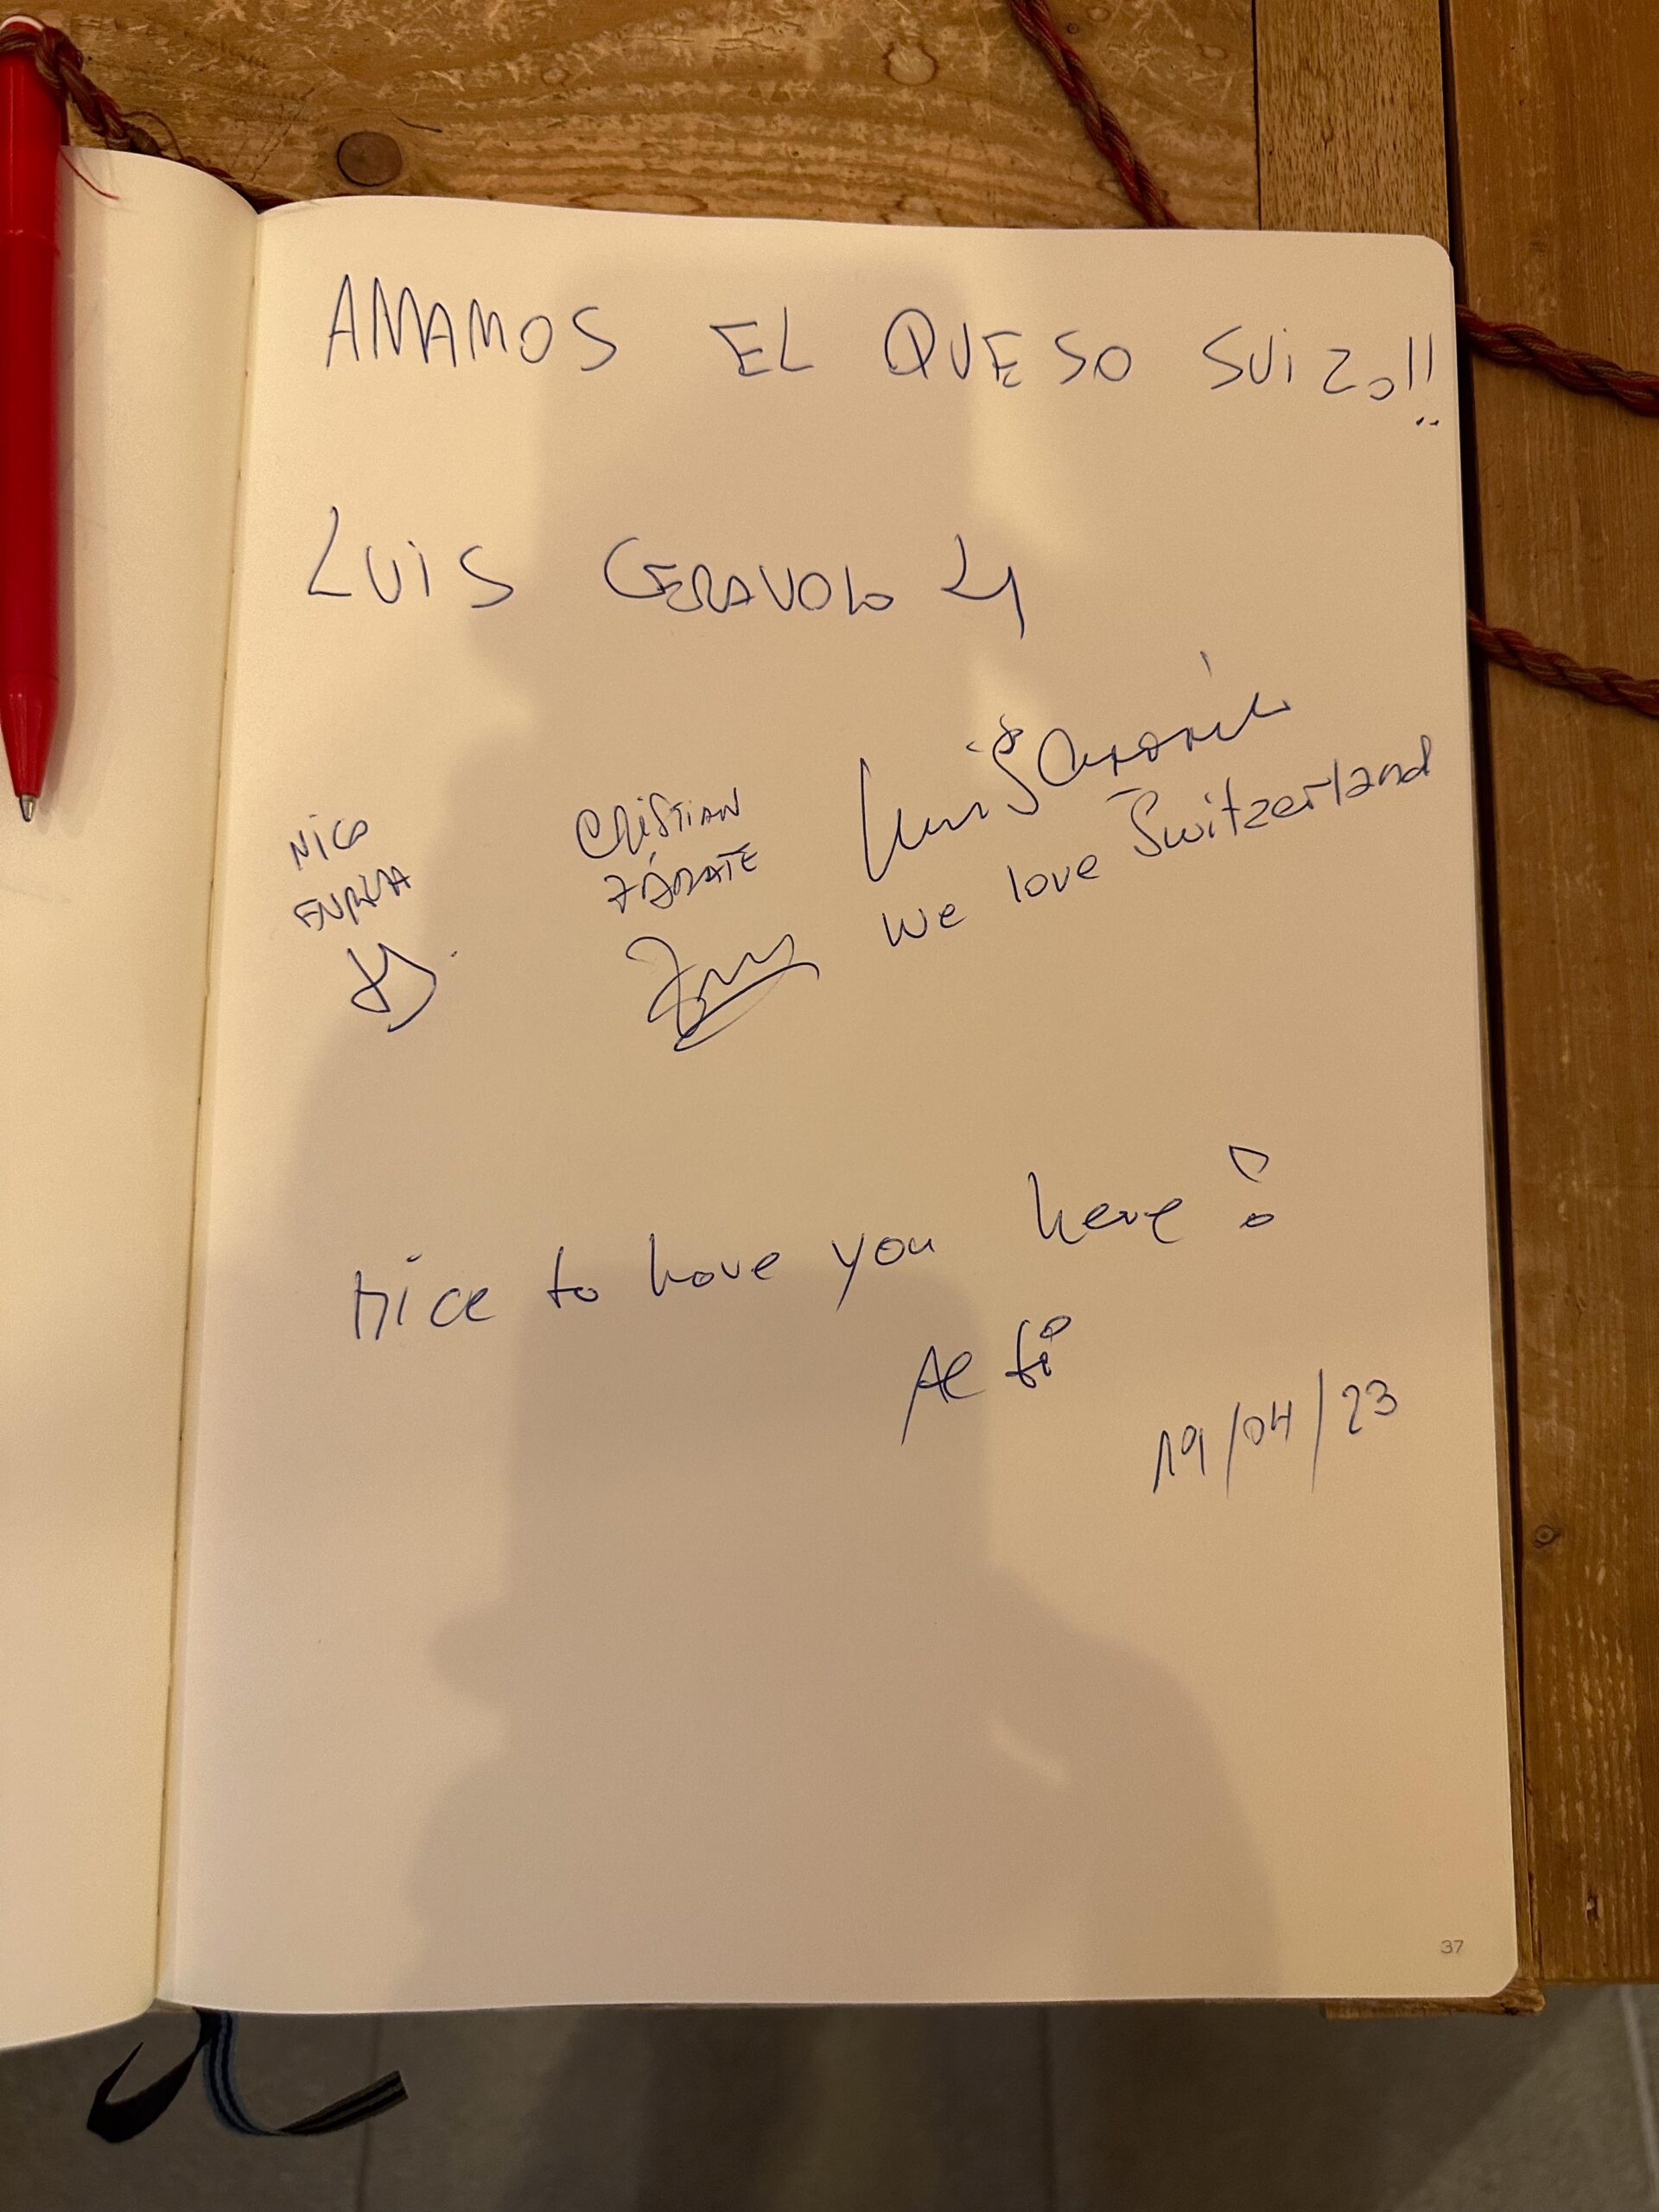 AMAMOS EL QUESO SUIZO!!
LUIS CERAVOLO
NICO
CRISTIAN
ZÁRATE
Luis
We love Switzerland
Nice to have you here!
19/04/23
37